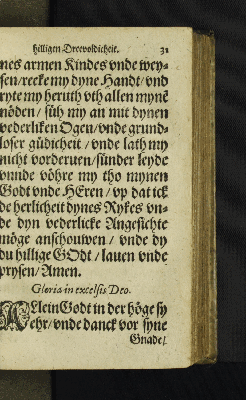 hilligen Dreevoldicheit. 31
nes armen Kindes vnde wey-
sen/recke my dyne Handt/vnd
ryte my heruth vth allen mynē
nöden/ süh my an mit dynen
vederliken Ogen/ vnde grund-
loser güdicheit / vnde lath my
nicht vorderuen/sünder leyde
vnnde vöhre my tho mynen
Godt vnde HEren/ vp dat ick
de herlicheit dynes Rykes vn-
de dyn vederlicke Angesichte
möge anschouwen / vnde dy
du hillige GOdt/ lauen vnde
prysen/ Amen.
Gloria in excelsis Deo.
ALlein Godt in der höge sy
ehr/vnde danck vor syne
Gnade/